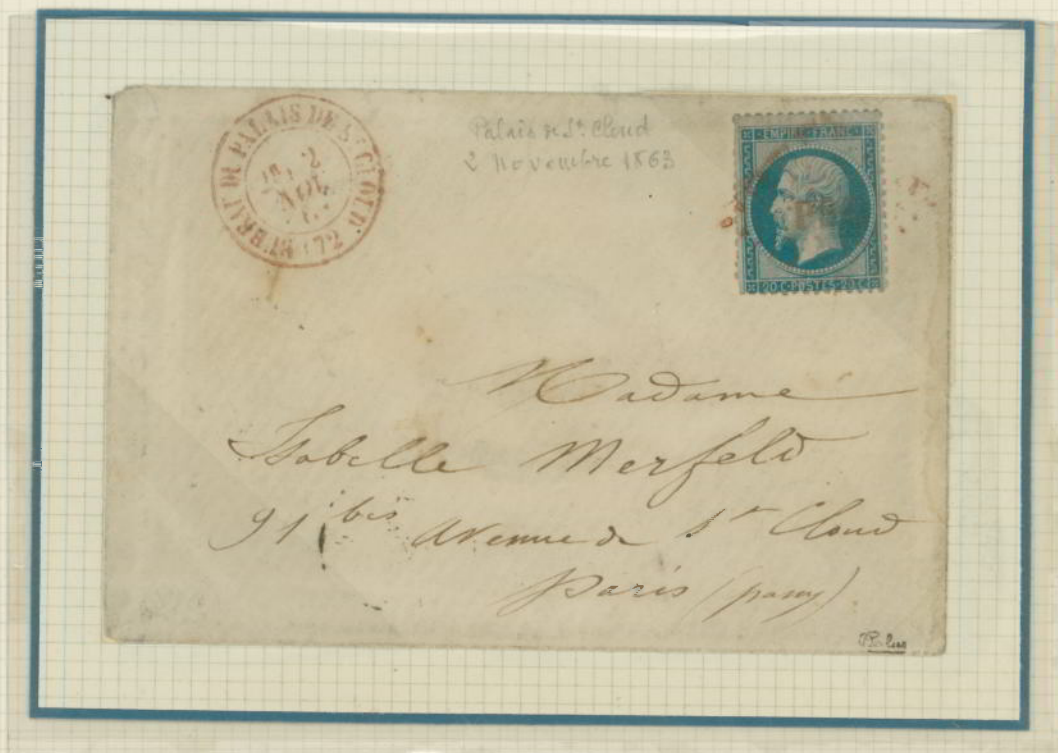 PALAIS DE St CLOUD
2
NOV.
Palais de St. Cloud
2 Novembre 1863
EMPIRE FRANC
20 C POSTES 20 C
Madame
Isabelle Merfeld
91 bis Avenue de St Cloud
Paris (passy)